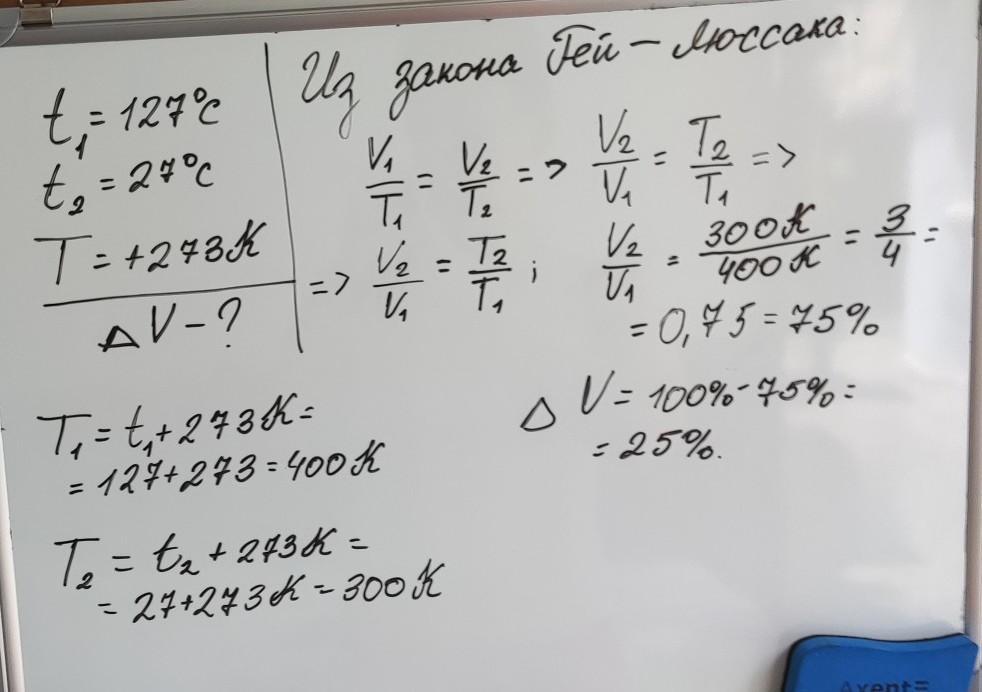 t₁ = 127°C
t₂ = 27°C
T = +273K
ΔV - ?
Из закона Гей - Люссака:
V₁/T₁ = V₂/T₂ => V₂/V₁ = T₂/T₁ =>
=> V₂/V₁ = T₂/T₁ ; V₂/V₁ = 300K/400K = 3/4 =
= 0,75 = 75%
ΔV = 100% - 75% =
= 25%.
T₁ = t₁ + 273K =
= 127 + 273 = 400K
T₂ = t₂ + 273K =
= 27 + 273K = 300K
Axent